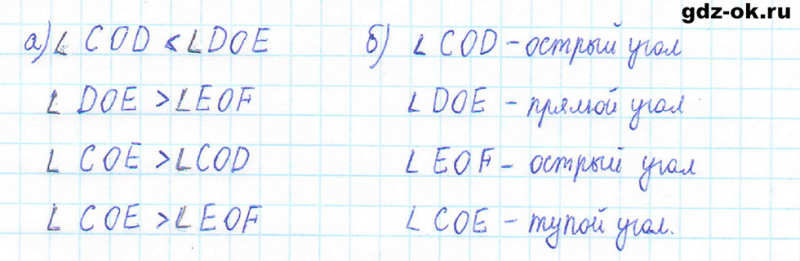 gdz-ok.ru
а) ∠ COD < ∠DOE
∠ DOE > ∠EOF
∠ COE > ∠COD
∠ COE > ∠EOF
б) ∠ COD – острый угол
∠ DOE – прямой угол
∠ EOF – острый угол
∠ COE – тупой угол.